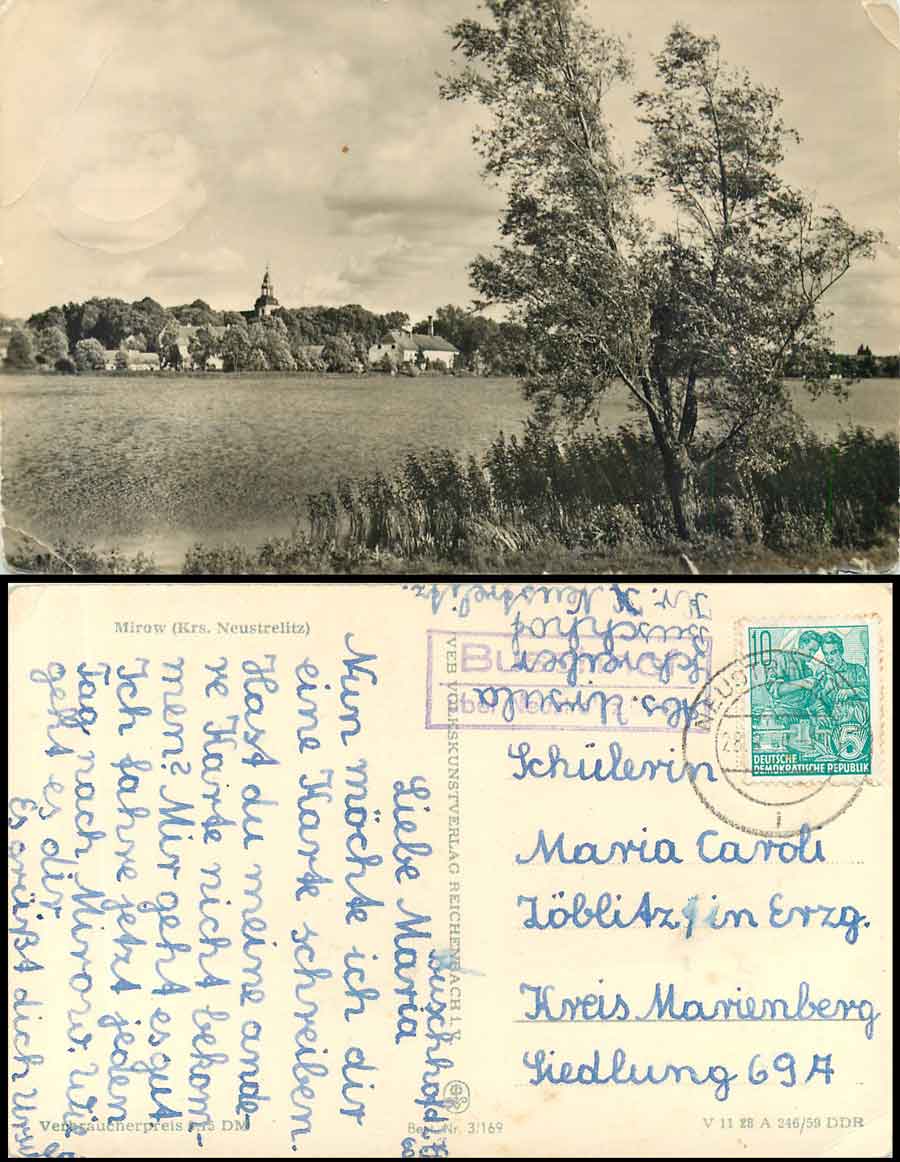 Mirow (Krs. Neustrelitz)
Buschhof
Liebe Maria
Nun möchte ich dir
eine Karte schreiben.
Hast du meine ande-
re Karte nicht bekom-
men? Mir geht es gut
Ich fahre jetzt jeden
Tag nach Mirow. Wie
geht es dir
Es grüßt dich
Verbraucherpreis 0,15 DM
VEB VOLKSKUNSTVERLAG REICHENBACH i. V.
Best. Nr. 3/169
Abs. Ursula
Schreiber
Buschhof
Kr. Neustrelitz.
10
5
DEUTSCHE
DEMOKRATISCHE REPUBLIK
Schülerin
Maria Caroli
Zöblitz, in Erzg.
Kreis Marienberg
Siedlung 69A
V 11 28 A 246/59 DDR